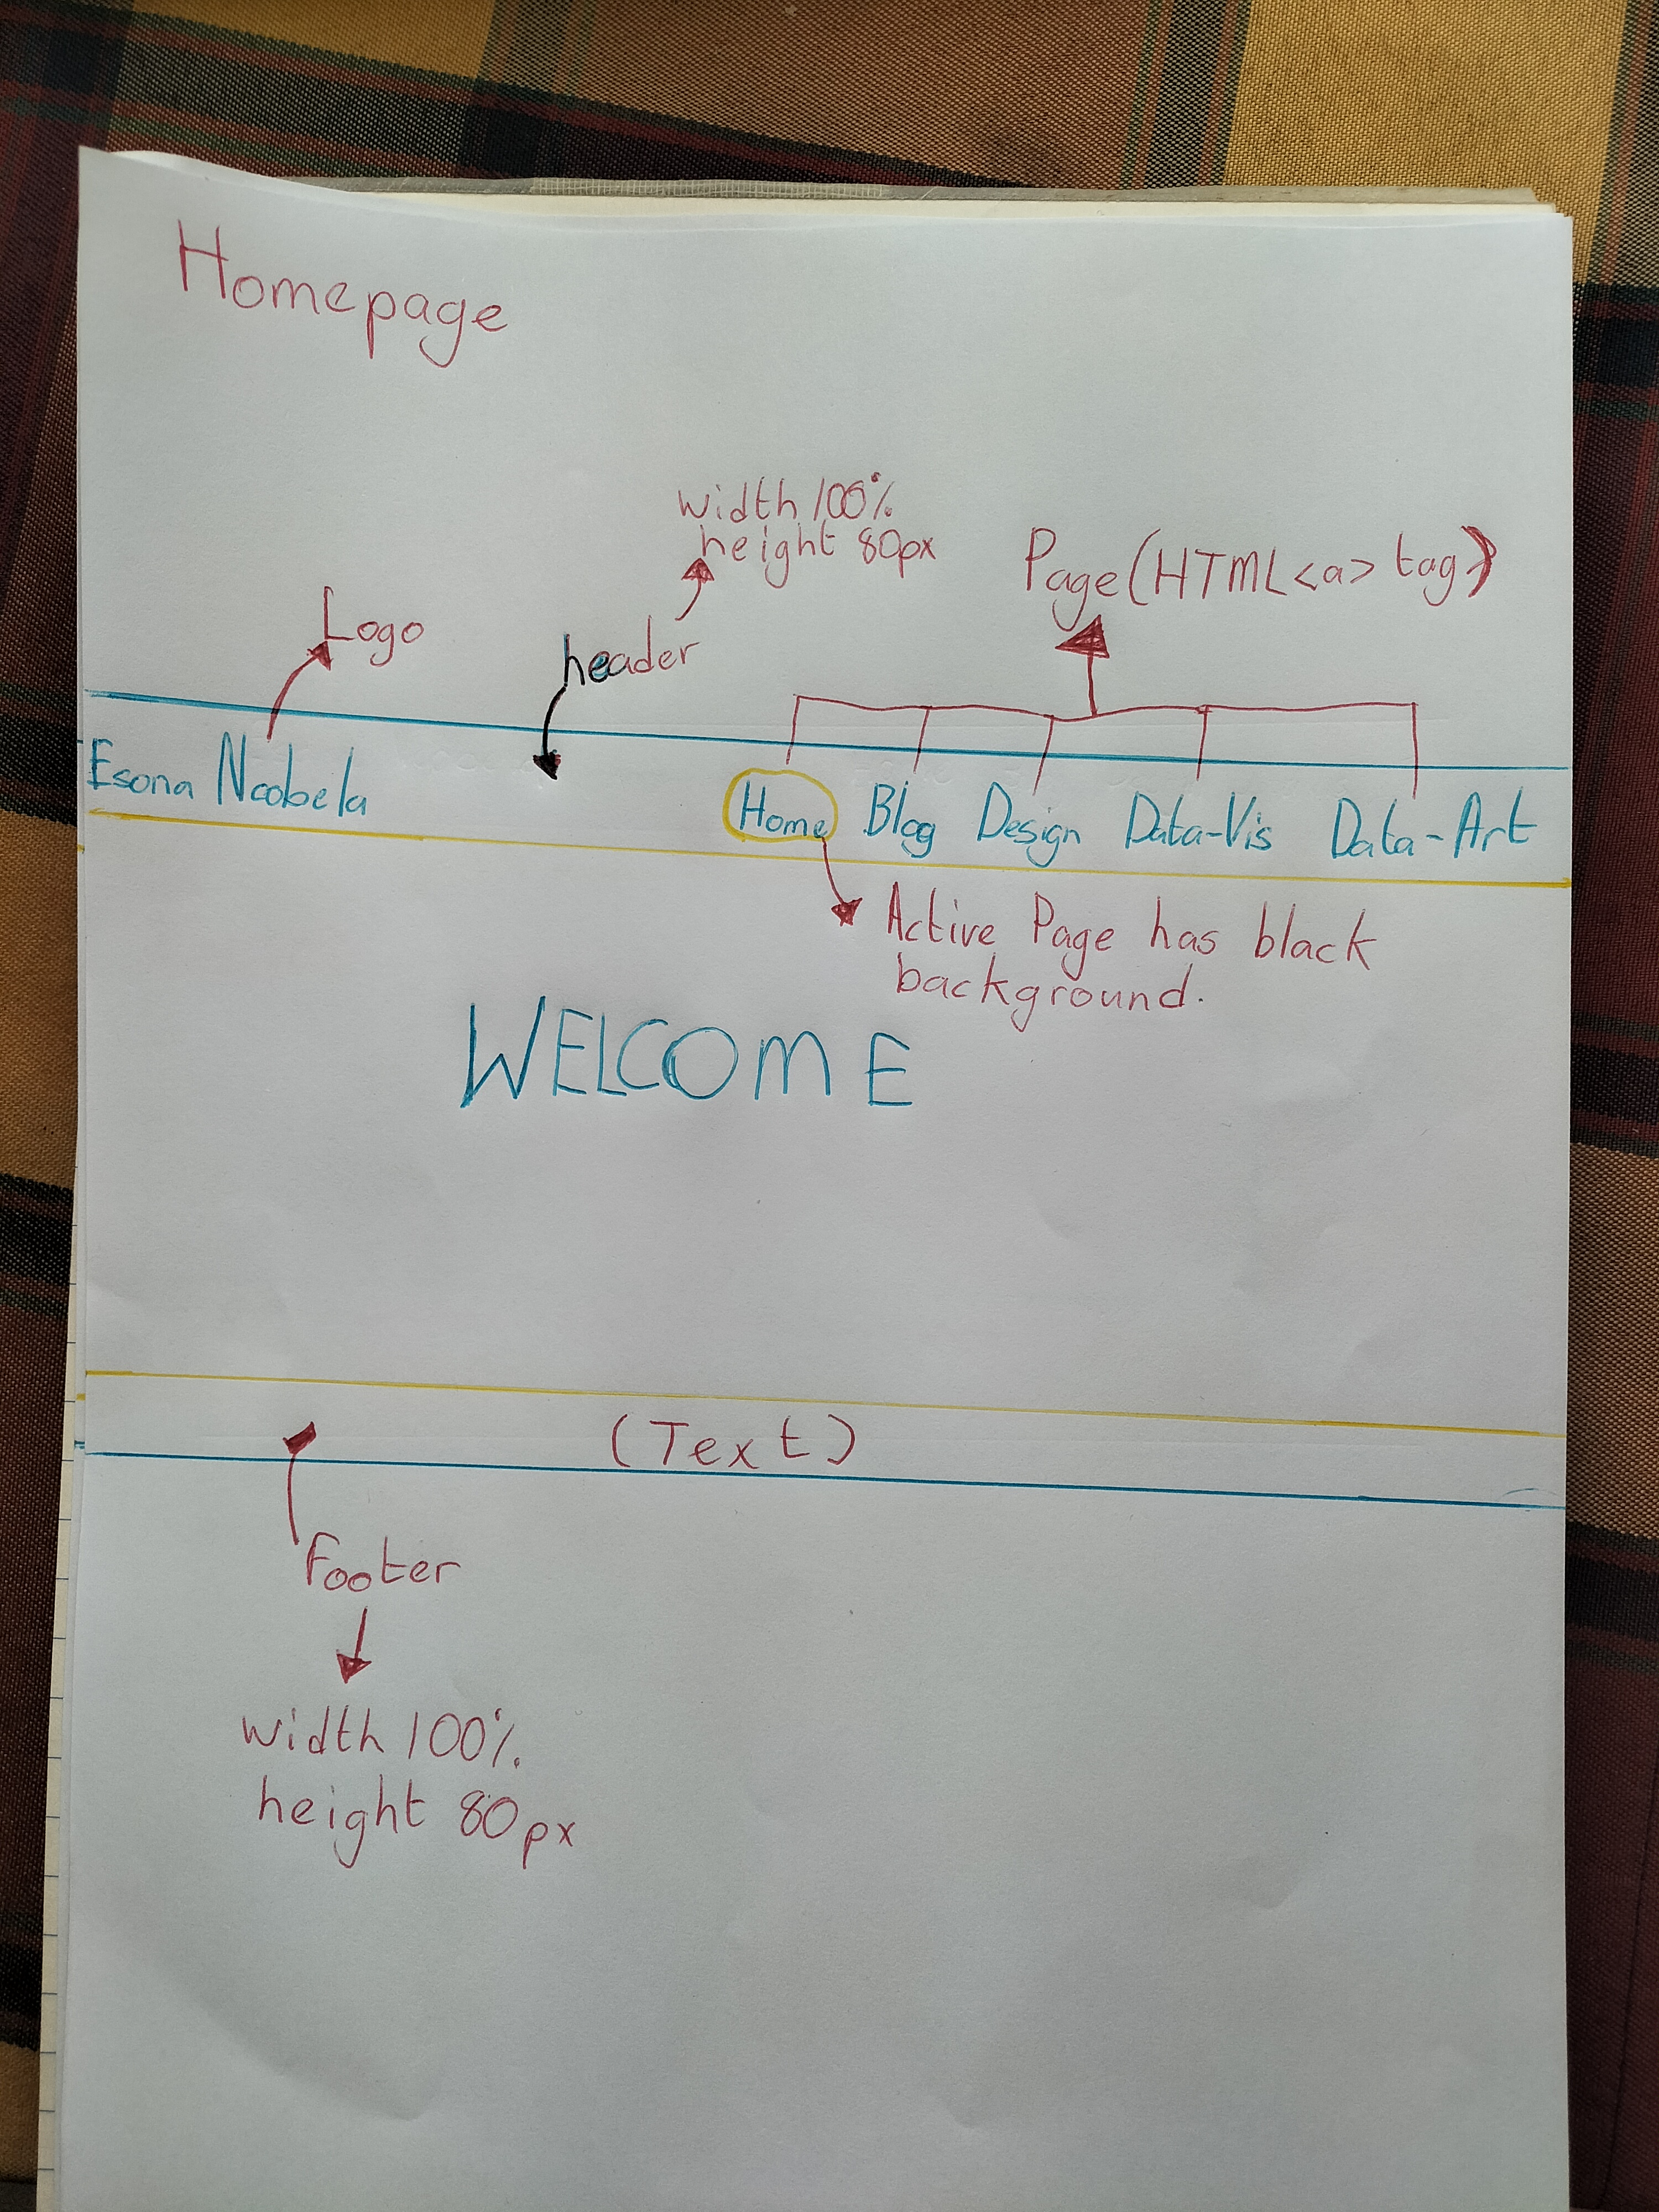 Homepage
width 100%
height 80px
Page(HTML<a> tag)
Logo
header
Esona Ncobela
Home Blog Design Data-Vis Data-Art
Active Page has black
background.
WELCOME
(Text)
footer
width 100%
height 80px